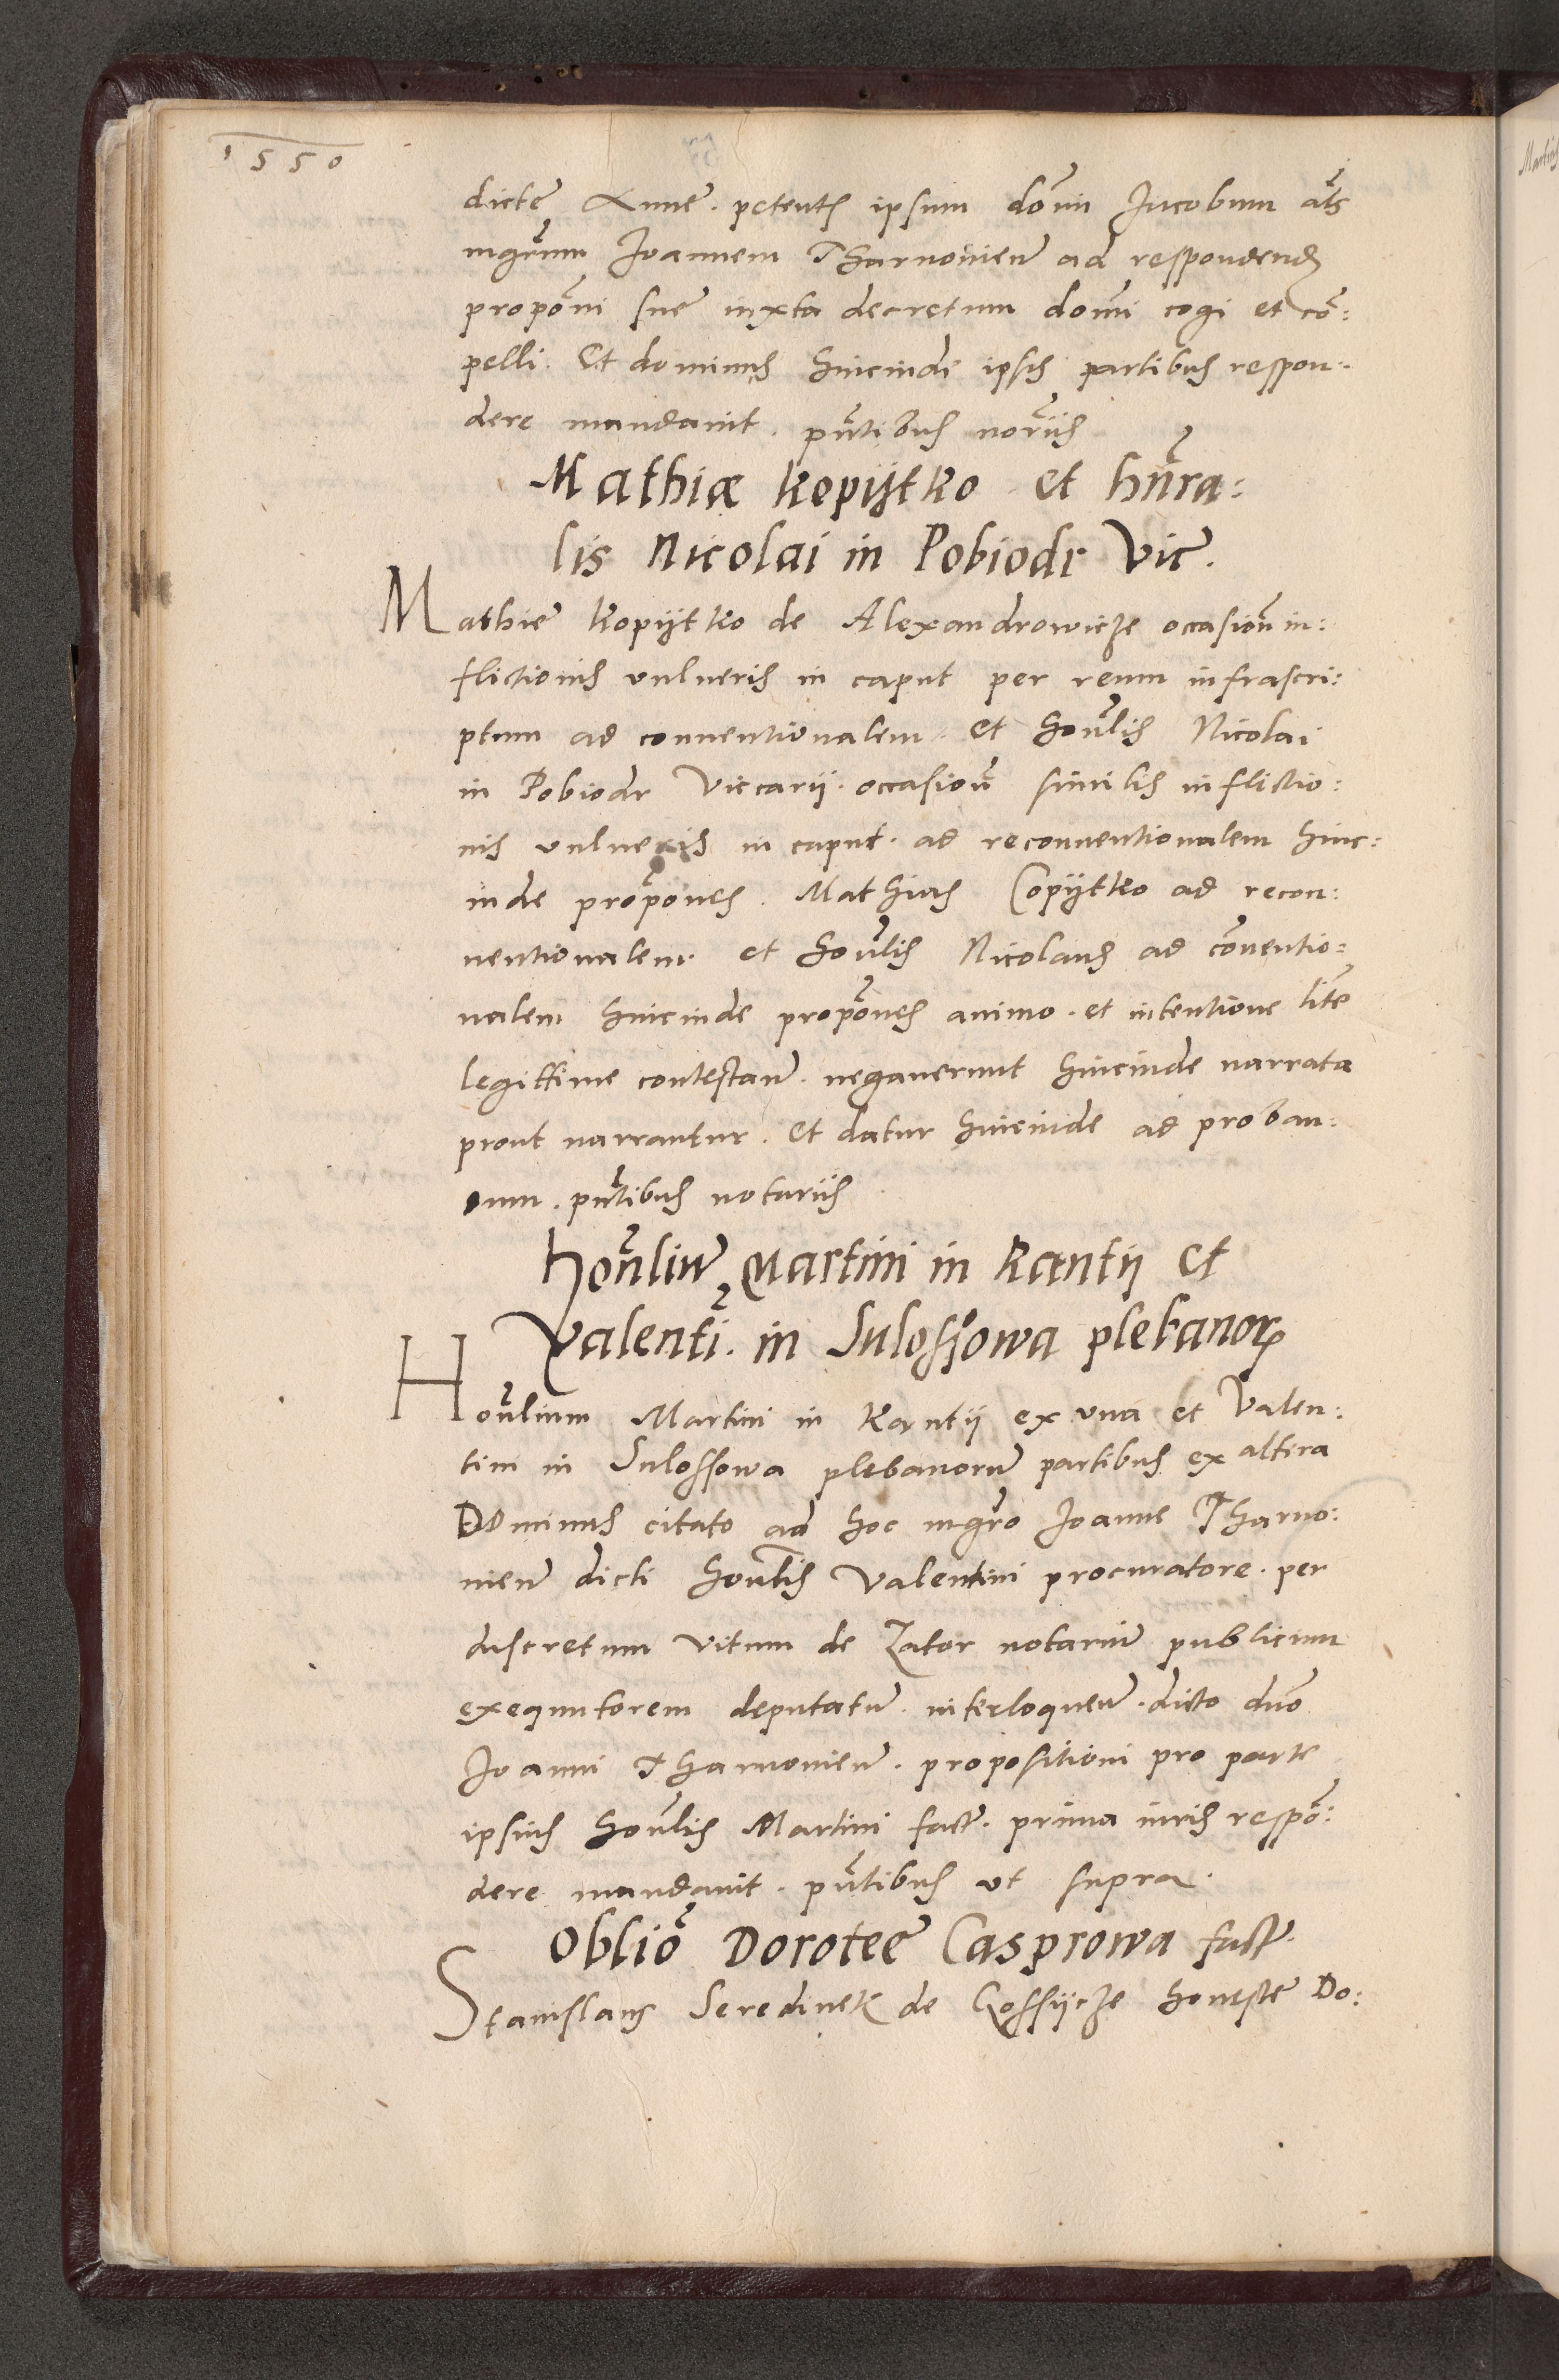 1550
dicte Anne. petentis ipsum domi Jacobum als
mgrum Joannem Tharnowien ad respondend
proponi sue iuxta decretum domi cogi et co:
pelli. Et dominus hincinde ipsis partibus respon:
dere mandavit. pntibus noriis
Mathiæ Kopijtko et hnra:
lis Nicolai in Pobiodr Vic.
Mathie Kopijtko de Alexandrowicze occasion in:
flictionis vulneris in caput per reum infrascri:
ptum ad conventionalem et honlis Nicolai
in Pobiodr Viccarij. occasion similis inflictio:
nis vulneris in caput. ad reconventionalem hinc:
inde propones. Mathias Copijtko ad recon:
ventionalem et honlis Nicolaus ad conventio:
nalem hincinde propones animo. et intentione lite
legittime contestan. negaverunt hincinde narrata
prout narrantur. Et datur hincinde ad proban:
dum. pntibus notariis
honlium Martini in Kantij et
Valenti. in Sulossowa plebanor
Honlium Martini in Kantij ex una et Valen:
tini in Sulossowa plebanorum partibus ex altera
Dominus citato ad hoc mgro Joanne Tharno:
wien dicti honlis Valentini procuratore. per
discretum Vitum de Zator notarium publicum
exequutorem deputatum. interloquen. dicto dno
Joanni Tharnowien. propositioni pro parte
ipsius honlis Martini fact. prima iuris respo:
dere mandavit. pntibus ut supra.
Oblio Dorotee Casprowa fact.
Stanislaus Seredinek de Gossijcze honeste Do: